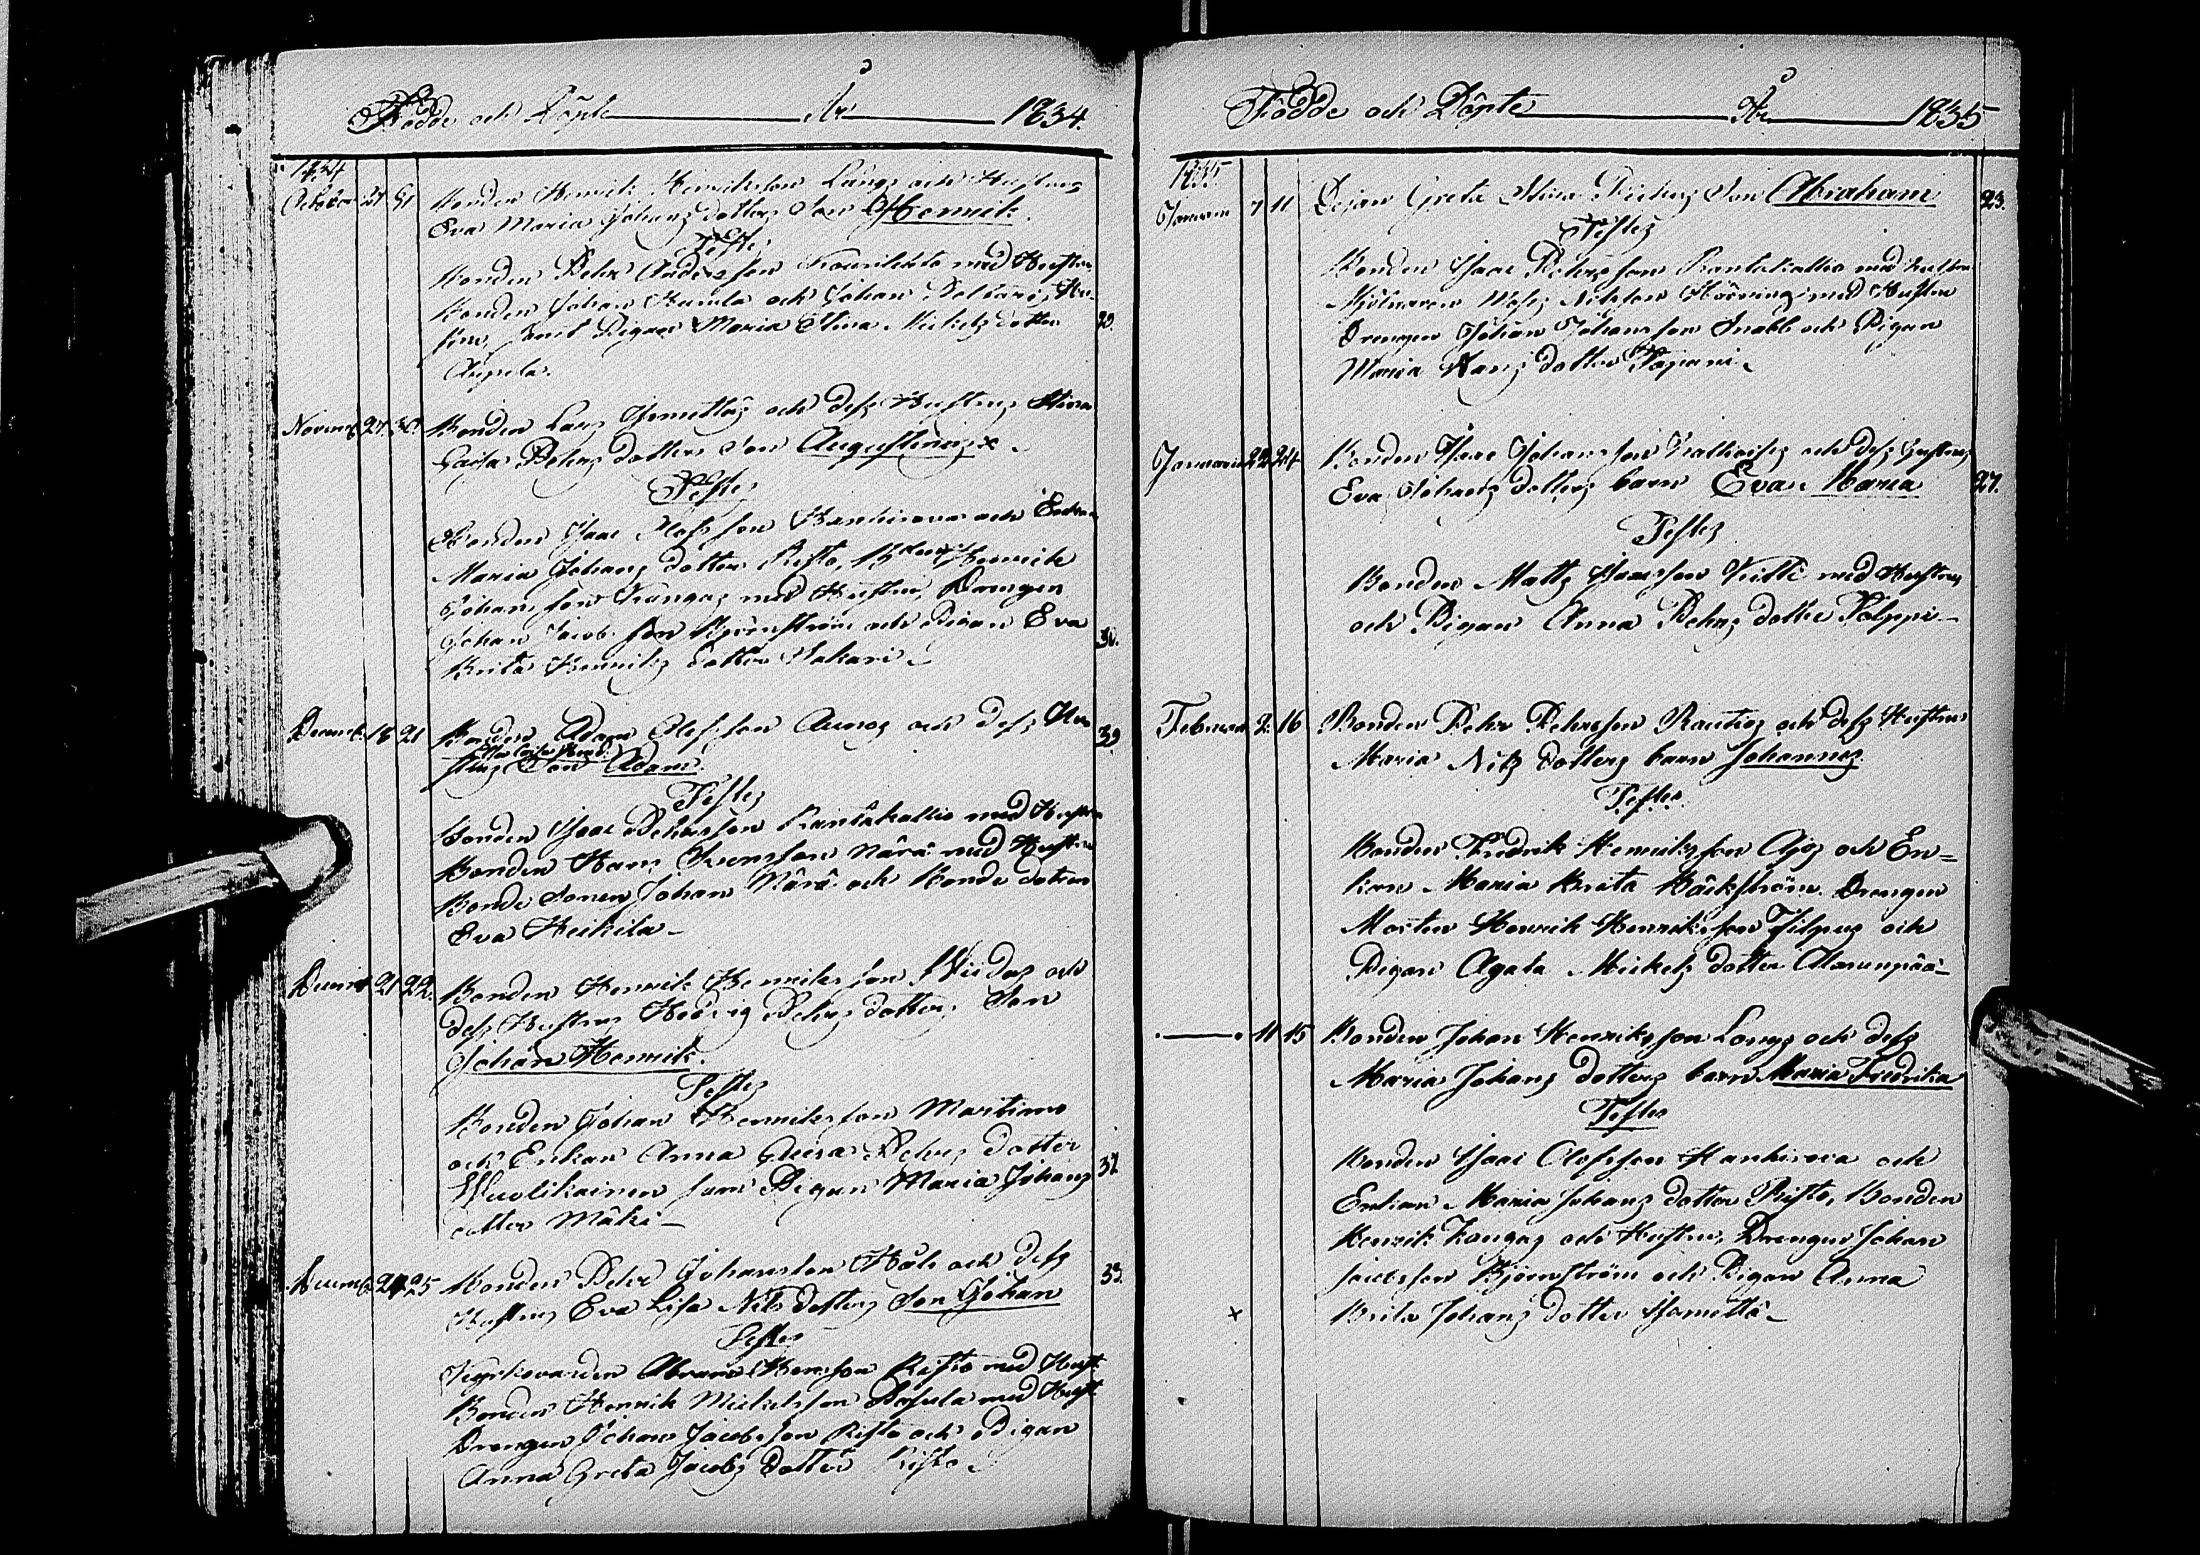 Födde och Döpte År 1834.
1834
October 27 31 Bonden Henrik Henriksson Långs och Hustrus
Eva Maria Johans dotters Son Henrik.
Testes
Bonden Petter Andersson med Hustru
Bonden Johan Kumla och Johan Hu-
stru, samt Pigan Maria Stina Mickels dotter 29.
Novemb. 27. 30. Bonden Lars och dess Hustrus Stina
Caisa Pehrs dotters Son Augustinus x
Testes
Bonden Isaac Olofsson Hankivara och Enkan
Maria Johans dotter Risto, Henrik
Johansson Kangas med Hustru, Drengen
Johan Jacobsson Björnström och Pigan Eva 30.
Brita Henriks dotter
Decemb. 18 21 Bonden Adam Olofsson och dess Hu-
strus Son Adam.
Testes
Bonden Isaac Pehrsson Rantakallio med Hustru
Bonden Hans Svensson Närä med Hustru
Bonde Sonen Johan Närä och Bonde dotren
Eva Heikila
Decemb 21 22. Bonden Henrik Henriksson och
dess Hustrus Hedvig Pehrs dotters Son
Johan Henrik.
Testes
Bonden Johan Henriksson Martimo
och Enkan Anna Pehrs dotter
Wuolikainen samt Pigan Maria Johans
dotter Mäki
Decemb. 24 25 Bonden Petter Johansson och dess 33.
Hustrus Eva Lisa Nils dotters Son Johan
Testes
Kyrkovärden Abram Hansson Risto med Hust.
Bonden Henrik Mickelsson med Hust.
Drengen Johan Jacobsson Risto och Pigan
Anna Greta Jacobs dotter Risto
Födde och Döpte År 1835
1835
Januarii 7 11 Pigan Greta Stina Son Abraham 23.
Testes
Bonden Isaac Pehrsson Rantakallio med Hustru
Mjölnaren Nilsson med Hustru
Drengen Johan Johansson Snabb och Pigan
Maria Hans dotter
Januarii 22 24 Bonden Isaac Johansson och dess Hustrus
Eva Johans dotters barn Eva Maria 27.
Testes
Bonden Matts Isaacsson med Hustru
och Pigan Anna Pehrs dotter
Februarii 2. 16 Bonden Pehr Pehrsson Rautios och dess Hustrus
Maria Nils dotters barn Johannes.
Testes
Bonden Fredrik Henriksson Ajos och En=
kan Maria Brita Bäckström. Drengen
Morten Henrik Henriksson Filpus och
Pigan Agata Mickels dotter Alarumpää
11 15 Bonden Johan Henriksson Longs och dess
Maria Johans dotters barn Maria Fredrika
Testes
Bonden Isaac Olofsson Hankivara och
Enkan Maria Johans dotter Risto, Bonden
Henrik Kangas och Hustru, Drengen Johan
Jacobsson Björnström och Pigan Anna
x Brita Johans dotter